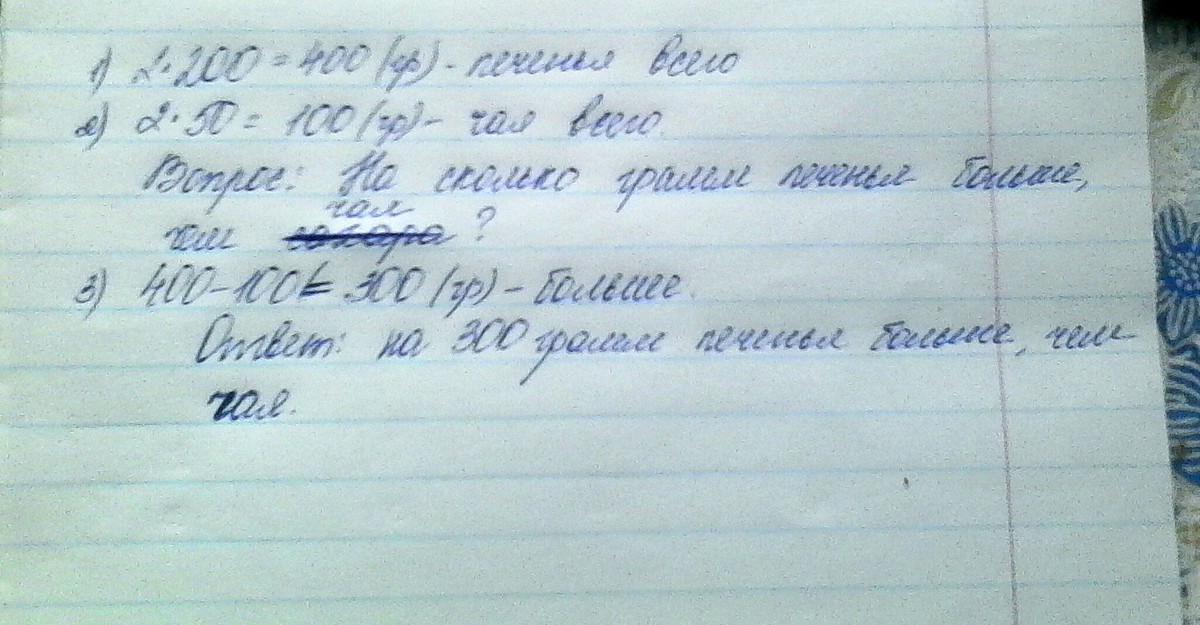 1) 2·200=400 (гр) - печенья всего
2) 2·50= 100 (гр) - чая всего.
Вопрос: На сколько грамм печенья больше,
чая
чем сахара ?
3) 400-100= 300 (гр) - больше.
Ответ: на 300 грамм печенья больше, чем
чая.